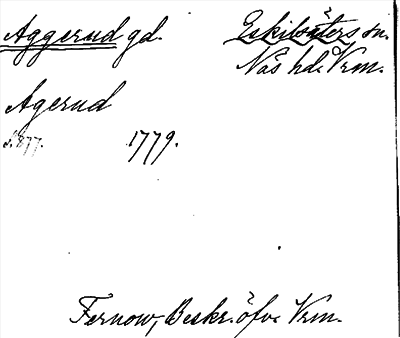 Aggerud gd. Eskilsäters sn.
Näs hd. Vrm.
Agerud
s. 877. 1779.
Fernow, Beskr. öfv. Vrm.